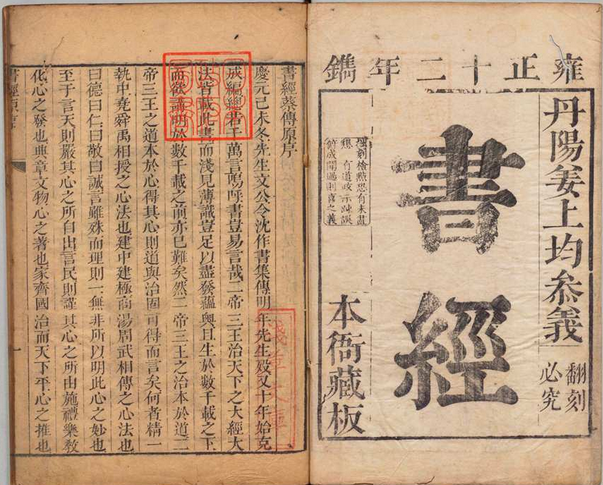 雍正十二年鐫
丹陽姜上均叅義
翻刻
必究
書經
本衙藏板
書經蔡傳原序
慶元己未冬先生文公令沈作書集傳明年先生歿又十年始克
成編總若干萬言嗚呼書豈易言哉二帝三王治天下之大經大
法皆載此書而淺見薄識豈足以盡發蘊奧且生於數千載之下
而欲講明於數千載之前亦已難矣然二帝三王之治本於道二
帝三王之道本於心得其心則道與治固可得而言矣何者精一
執中堯舜禹相授之心法也建中建極商湯周武相傳之心法也
曰德曰仁曰敬曰誠言雖殊而理則一無非所以明此心之妙也
至于言天則嚴其心之所自出言民則謹其心之所由施禮樂教
化心之發也典章文物心之著也家齊國治而天下平心之推也